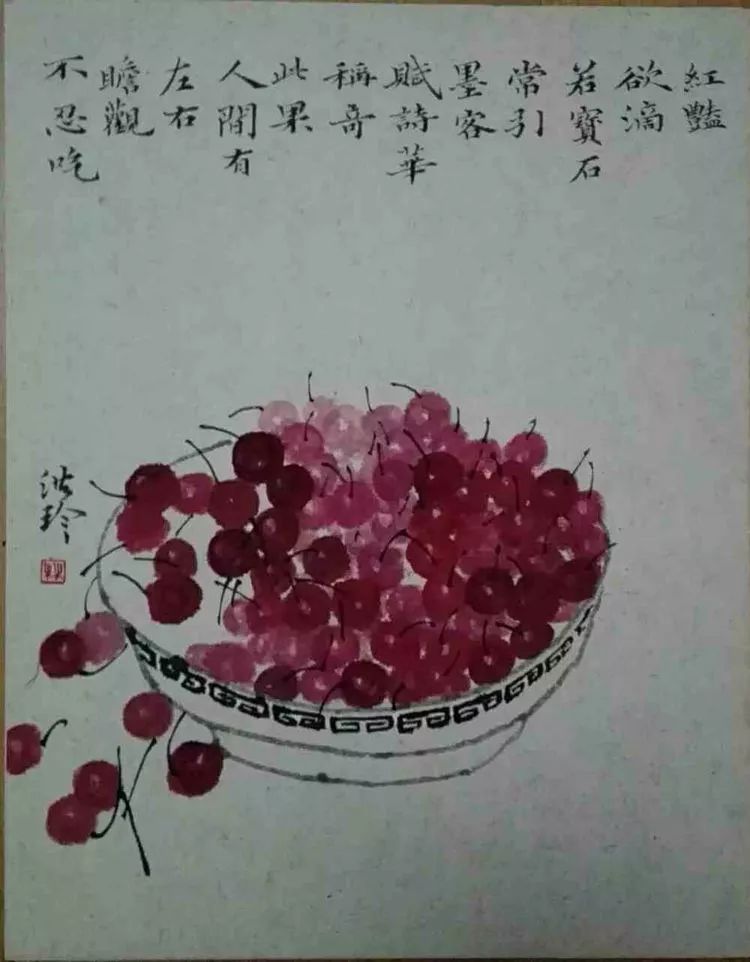 紅豔
欲滴
若寶石
常引
墨客
賦詩華
稱奇
此果
人間有
左右
瞻觀
不忍吃